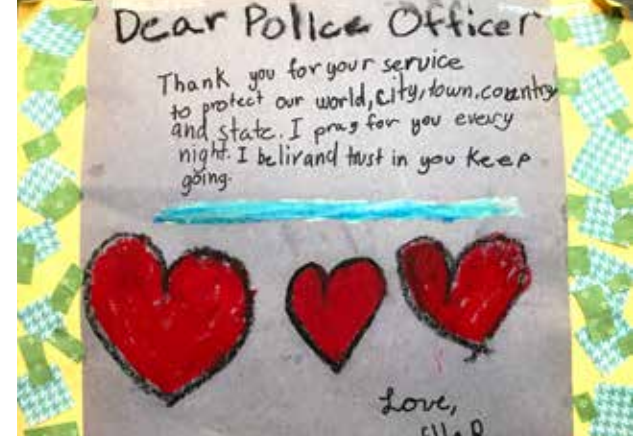 Dear Police Officer
Thank you for your service
to protect our world, city, town, country
and state. I pray for you every
night. I belivand trust in you keep
going.
Love,